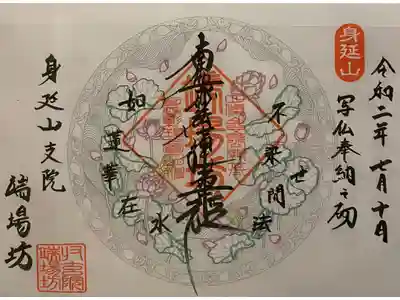 身延山
令和二年 七月十日
写仏奉納之砌
不染世間法
南無妙法蓮華経
如蓮華在水
身延山支院
端場坊